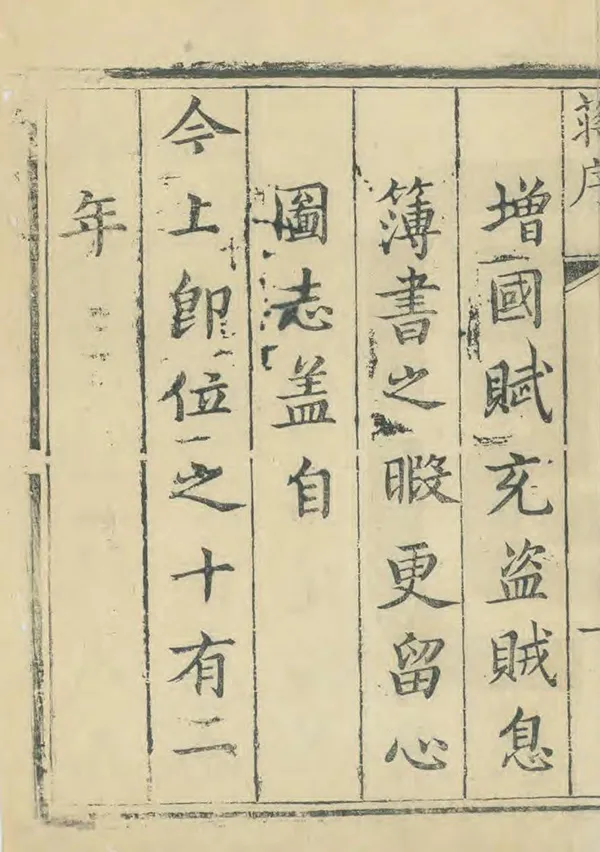 蔣序
一
增國賦充盜賊息
簿書之暇更留心
圖志盖自
今上即位之十有二
年